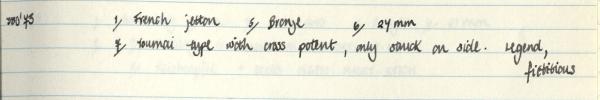 1, French jetton 5, Bronze 6, 24 mm
7, Tournai type with cross potent, only struck on side. Legend,
fictitious